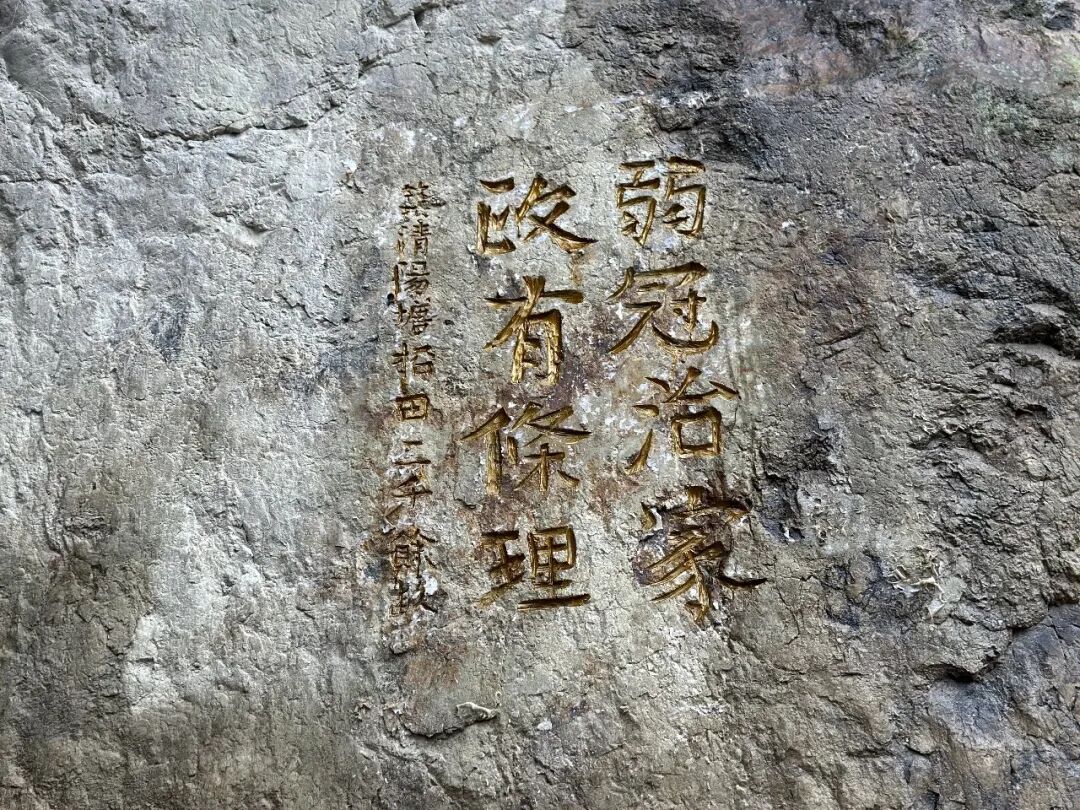 弱冠治家
政有條理
築清陽塘拓田二千餘畝